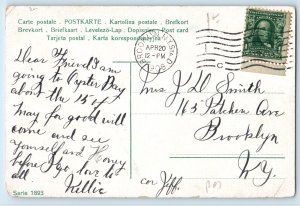 Carte postale. · POSTKARTE · Kartolina postale. · Brefkort
Brevkort. · Briefkaart. · Levelező-Lap · Dopisnice. · Post card
Tarjeta postal. · Karta korespondencyjna.
APR 20
12-PM
C
Dear Friend I am
going to Oyster Bay
about the 15 of
May for good will
come and see
yourself and Harry
before I go love to
all
Nellie
Mrs J D Smith
163 Patchen Ave
Brooklyn
N.Y.
cor Jeff.
Serie 1893